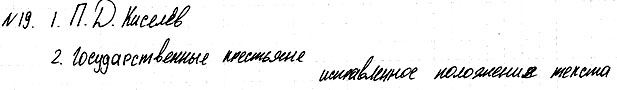 №19. 1. П. Д. Киселёв
2. Государственные крестьяне
исправленное положение текста